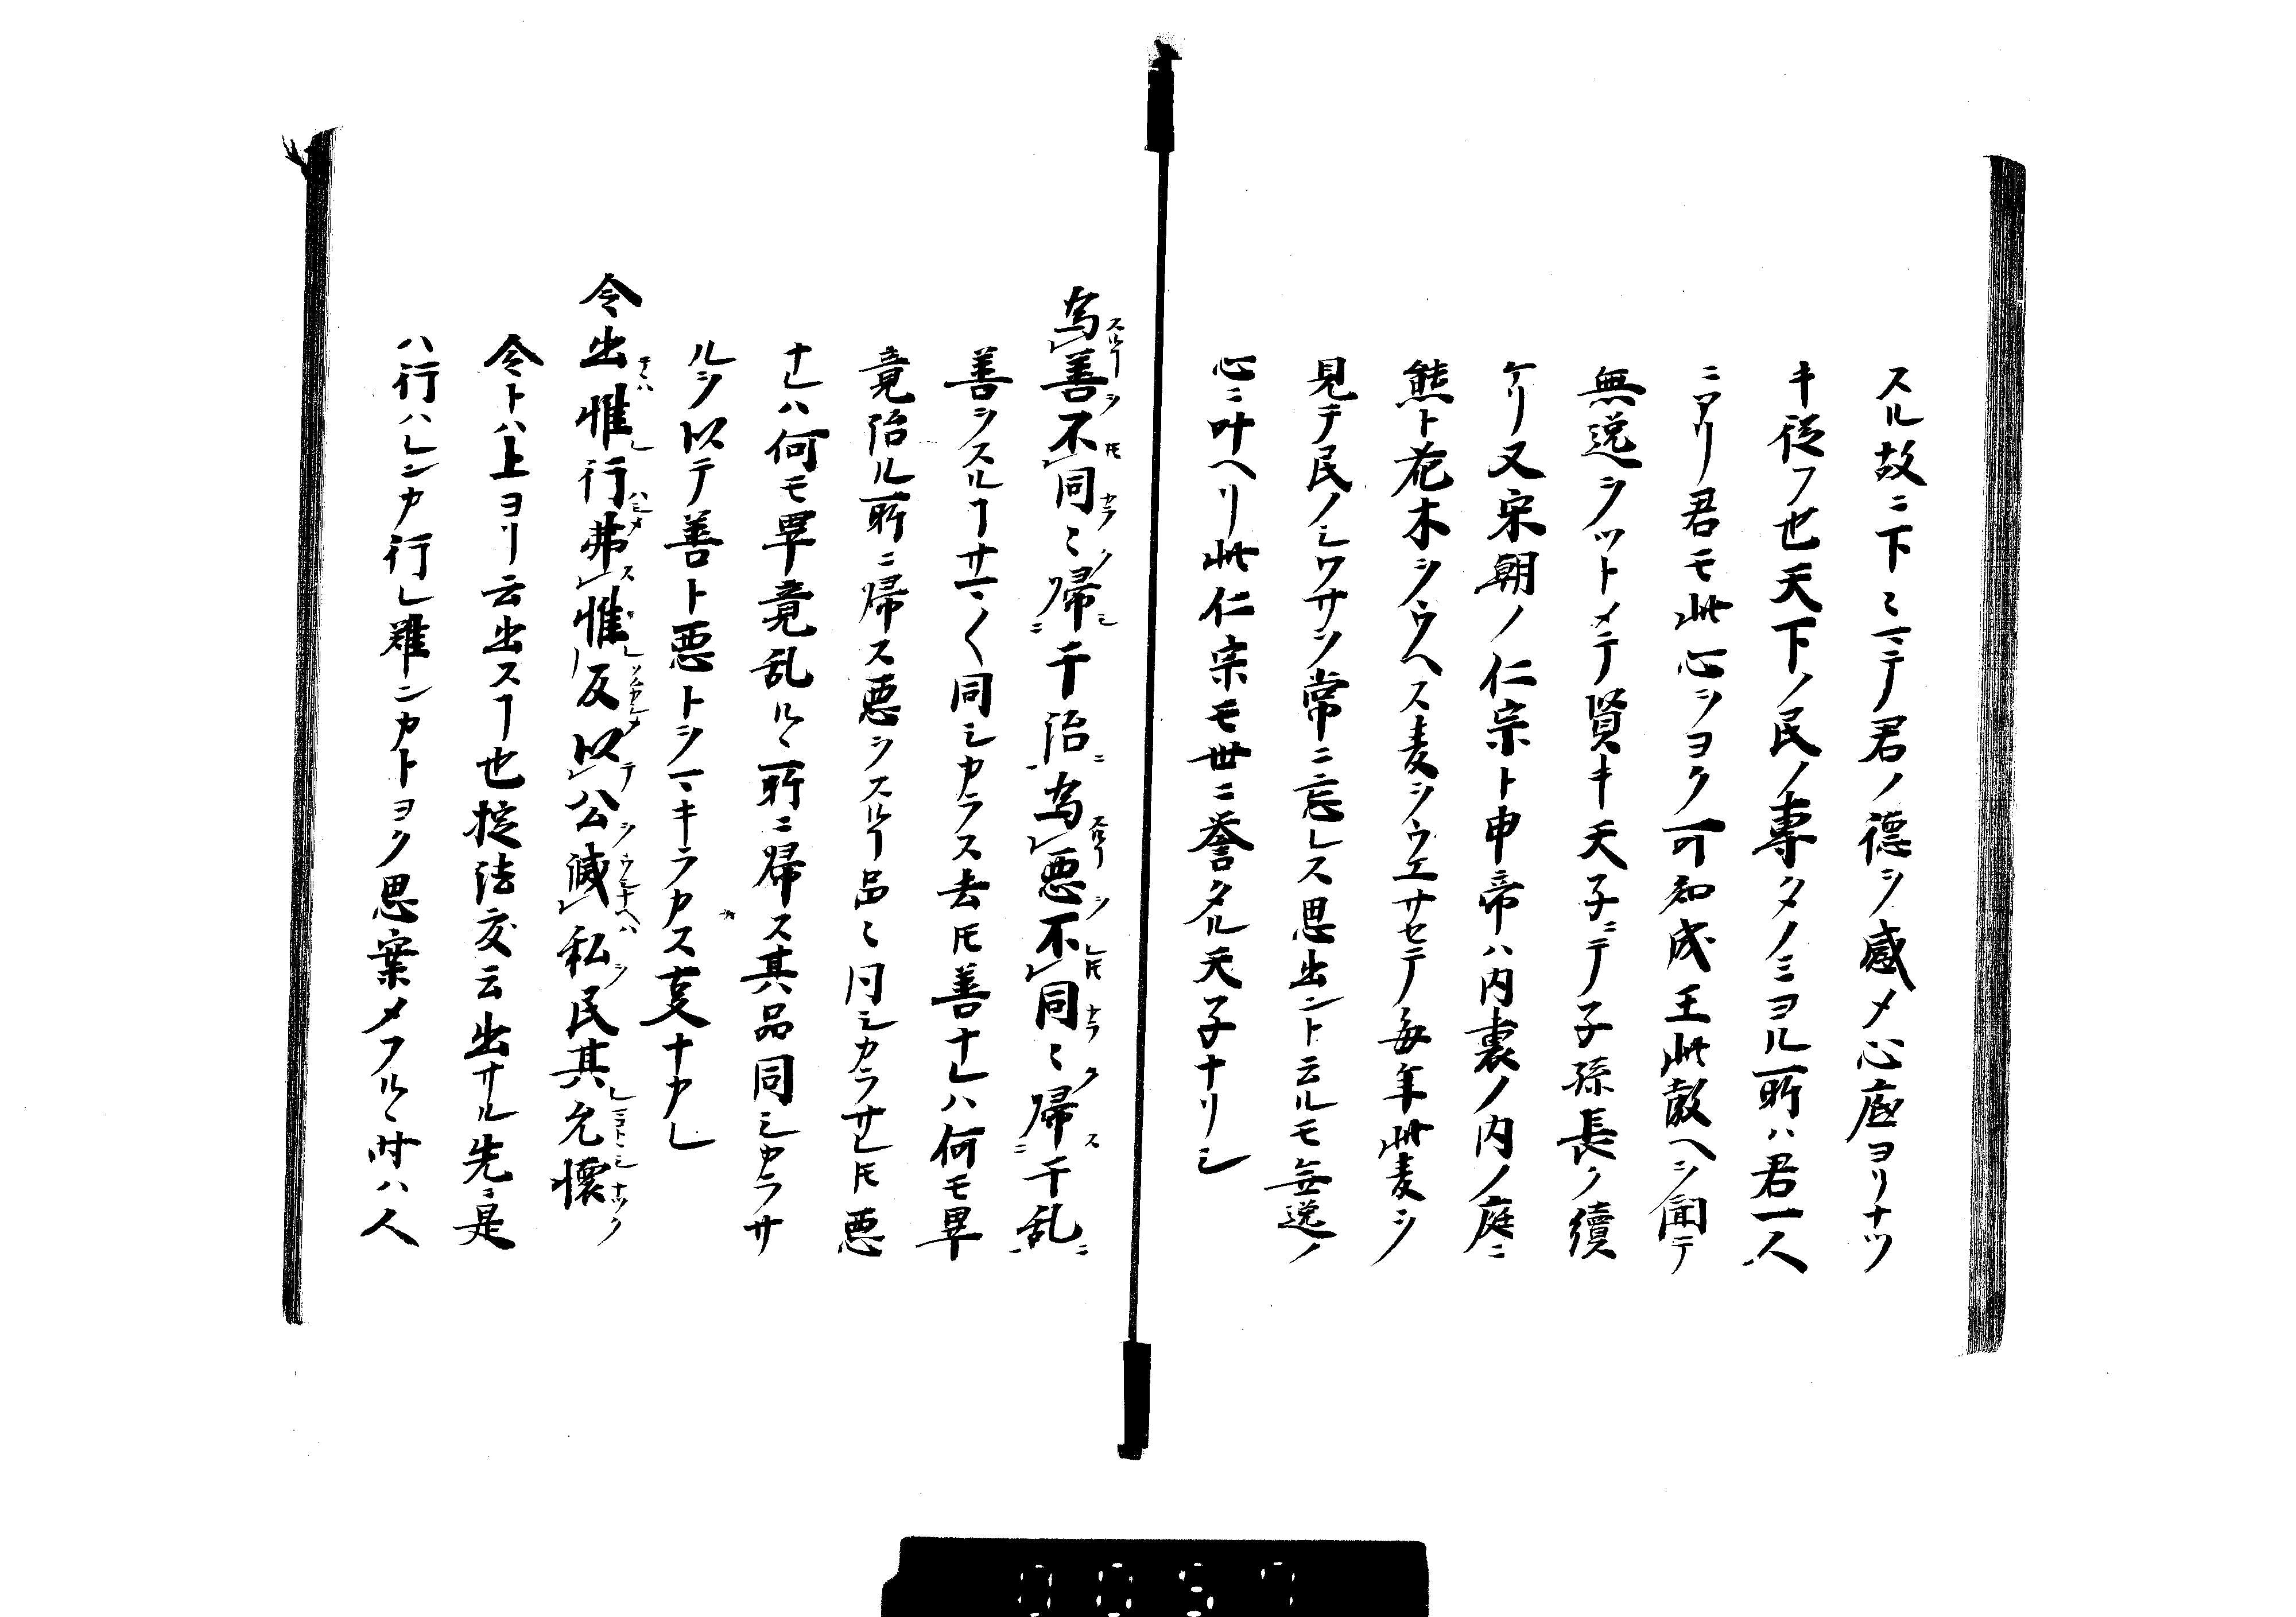 スル故ニ下〻マテ君ノ徳ヲ感メ心底ヨリナツ
キ従フ也天下ノ民ノ専タノミヨル所ハ君一人
ニアリ君モ此心ヲヨク可知成王此教ヘヲ聞テ
無逸ヲツトメテ賢キ天子ニテ子孫長ク續
ケリ又宋朝ノ仁宗ト申帝ハ内裏ノ内ノ庭ニ
熊ト花木ヲウヘス麦ヲウエサセテ毎年此麦ヲ
見テ民ノシワサヲ常ニ忘レス思出ント云ルモ無逸ノ
心ニ叶ヘリ此仁宗モ世ニ誉タル天子ナリシ
為善不同〻帰于治為悪不同〻帰于乱
善ヲスルヿサマ〱同シカラス去𪜈善ナレハ何モ畢
竟治ル所ニ帰ス悪ヲスルヿ品〻同シカラサレ𪜈悪
ナレハ何モ畢竟乱ルヽ所ニ帰ス其品同シカラサ
ルヲ以テ善ト悪トヲマキラカス叓ナカレ
令出惟行弗惟反以公滅私民其允懐
令トハ上ヨリ云出スヿ也掟法度云出サル先ニ是
ハ行ハレンカ行レ難ンカトヨク思案メフルヽ時ハ人